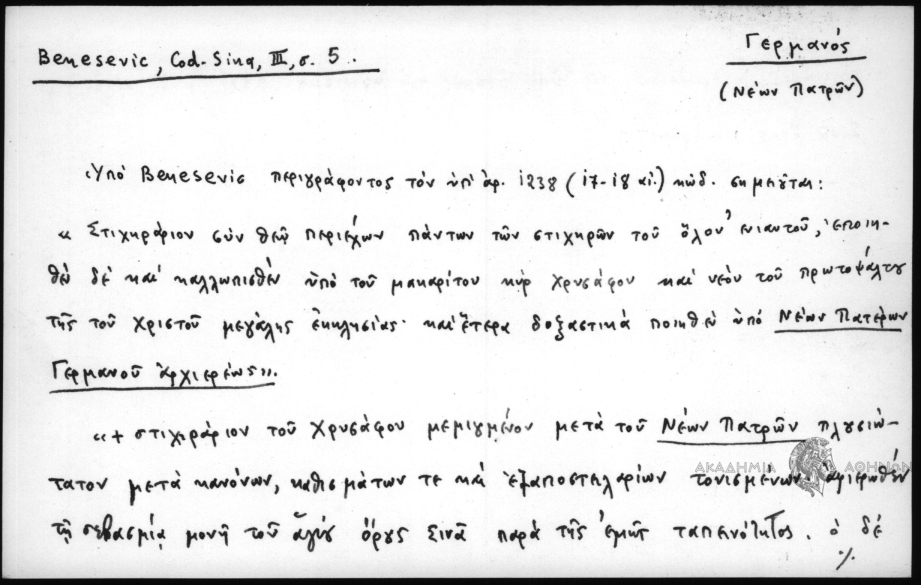 Benesevic, Cod. Sina, III, σ. 5.
Γερμανός
(Νέων Πατρῶν)
Ὑπό Benesevis περιγράφοντος τόν ὑπ' ἀρ. 1238 (17-18 αἰ.) κώδ. σημειοῦται:
« Στιχηράριον σύν θεῷ περιέχων πάντων τῶν στιχηρῶν τοῦ ὅλου ἐνιαυτοῦ, ἐποιη-
θέν δέ καί καλλωπισθέν ὑπό τοῦ μακαρίτου κύρ Χρυσάφου καί νέου τοῦ πρωτοψάλτου
τῆς τοῦ Χριστοῦ μεγάλης ἐκκλησίας· καί ἕτερα δοξαστικά ποιηθέν ὑπό Νέων Πατέρων
Γερμανοῦ ἀρχιερέως».
«+ στιχιράριον τοῦ Χρυσάφου μεμιγμένον μετά τοῦ Νέων Πατρῶν πλουσιώ-
τατον μετά κανόνων, καθισμάτων τε καί ἐξαποστειλαρίων τονισμένων· ἀφιερωθέν
τῇ σεβασμίᾳ μονῇ τοῦ ἁγίου ὄρους Σινᾶ παρά τῆς ἐμῆς ταπεινότητος. ὁ δέ
·/.
ΑΚΑΔΗΜΙΑ ΑΘΗΝΩΝ